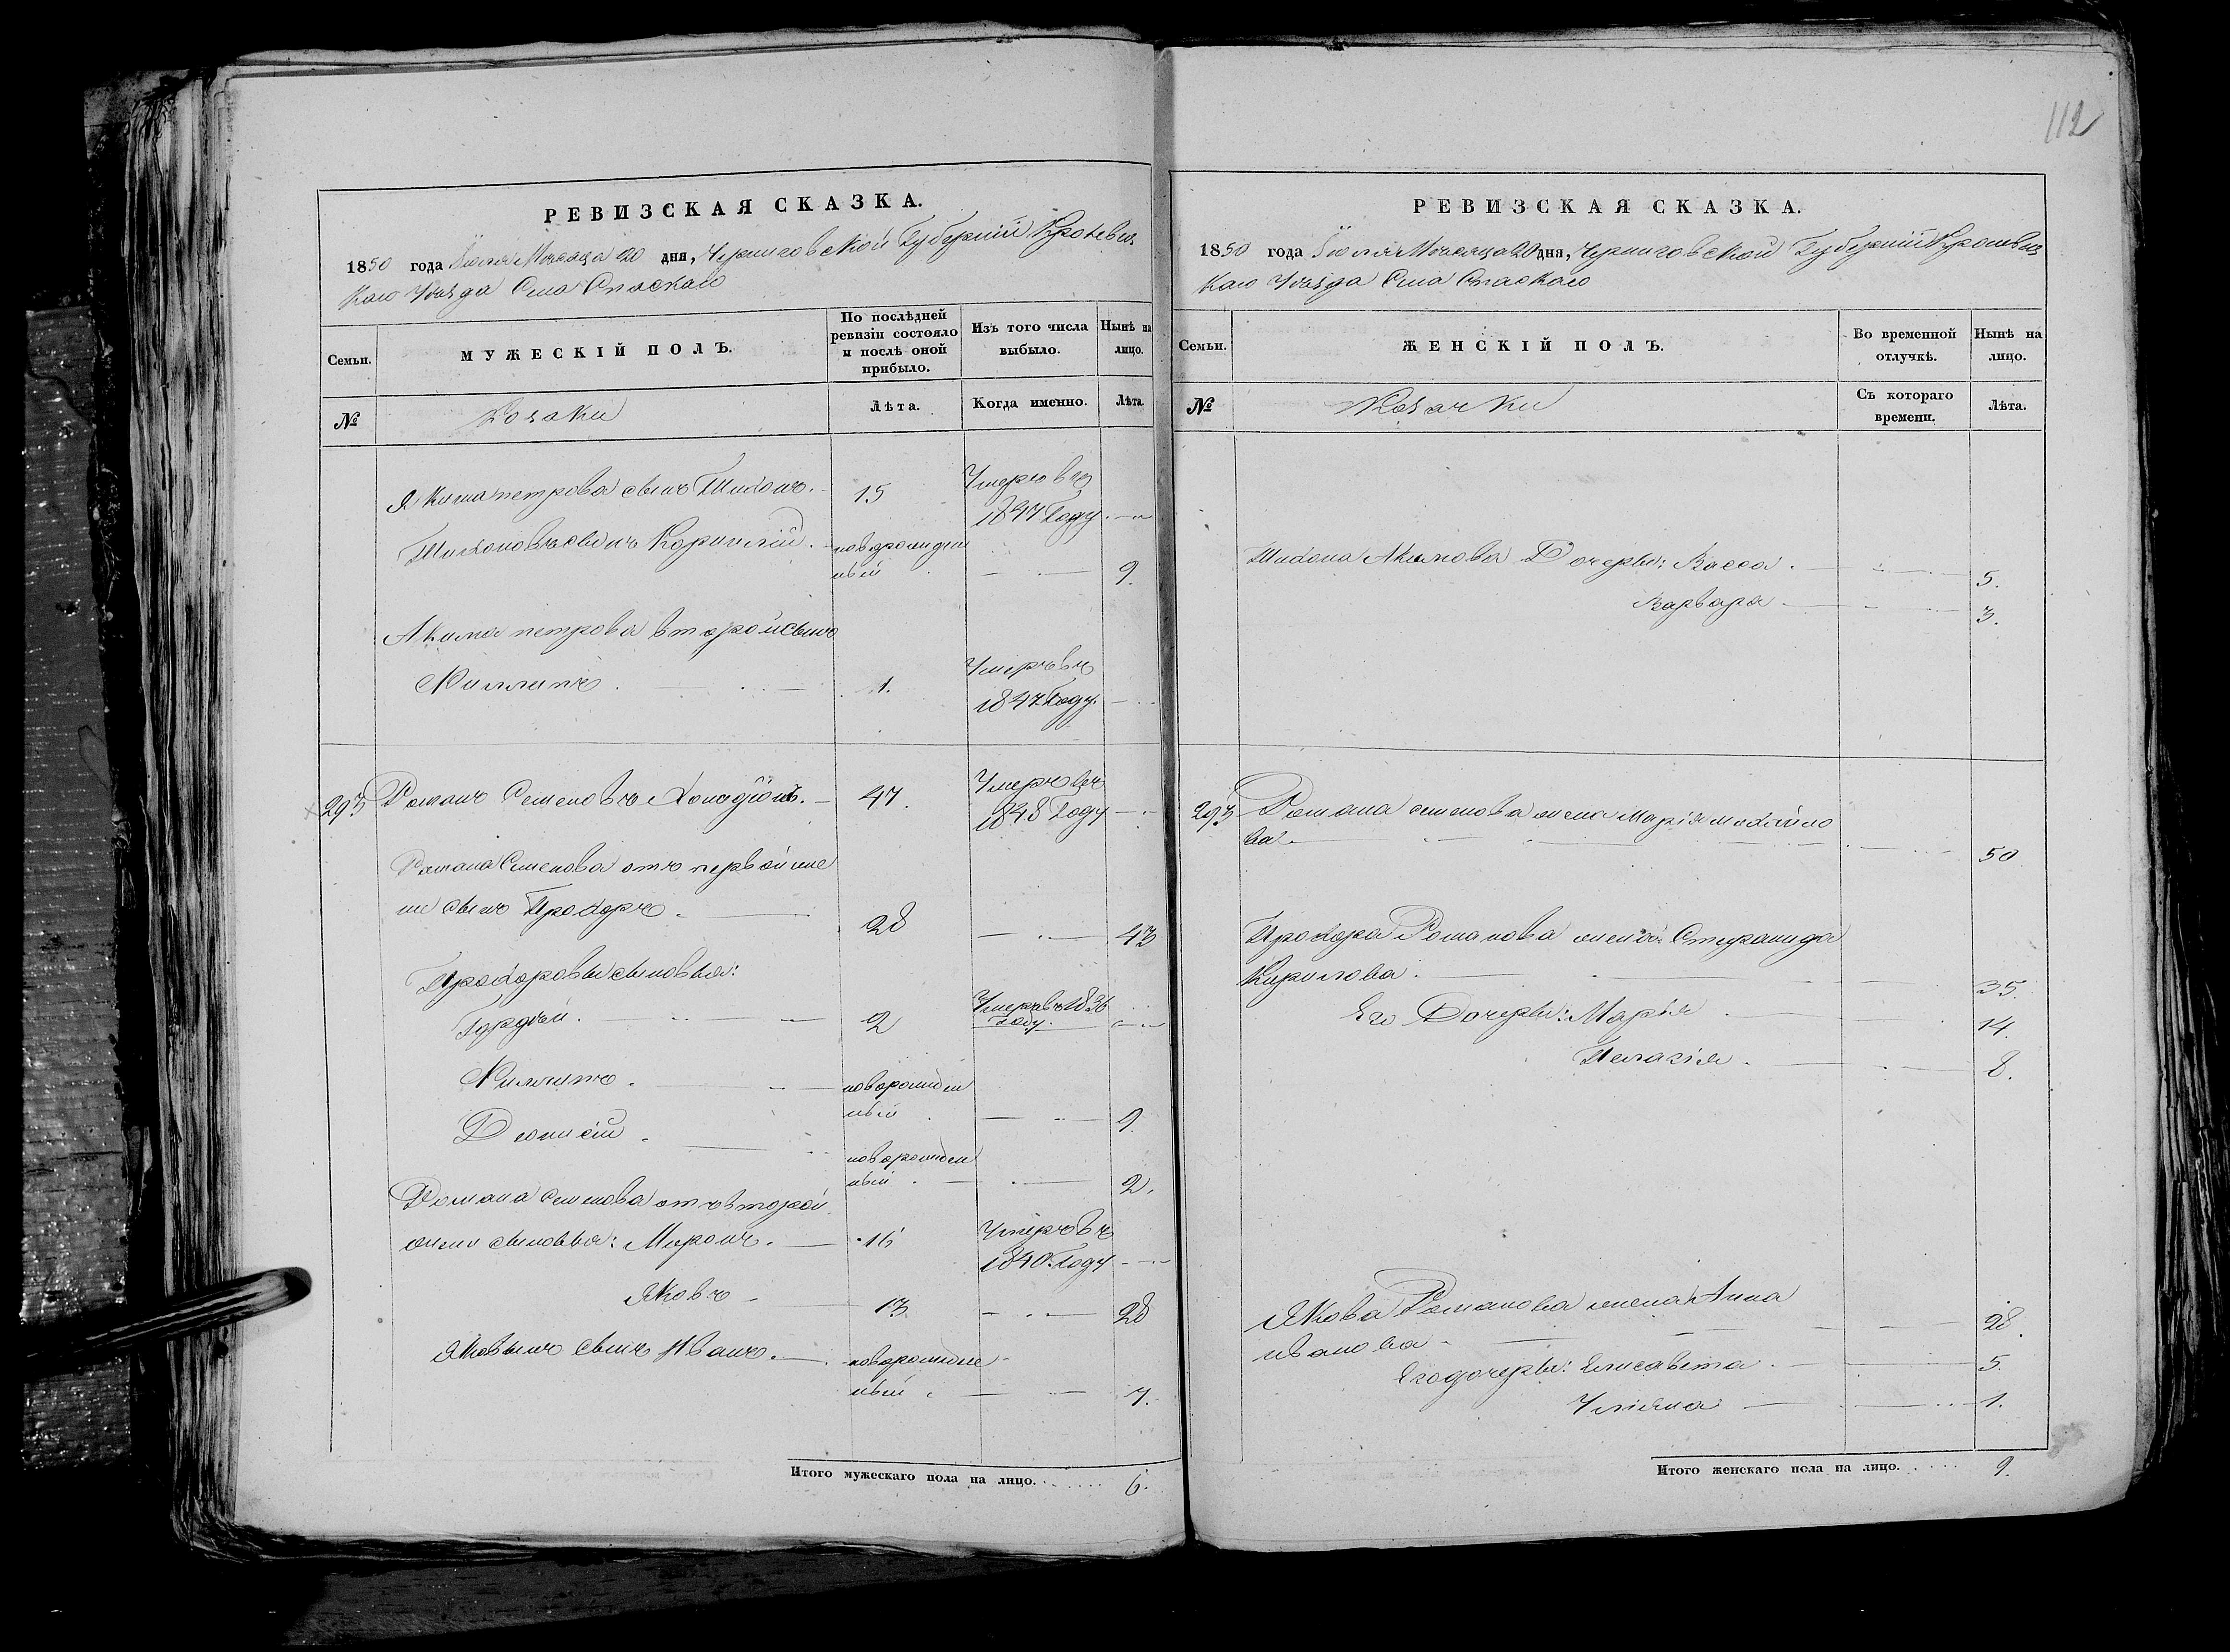 112
РЕВИЗСКАЯ СКАЗКА.
1850 года Июля Месяца 20 дня, Черниговской Губернии Кролевец
каго Уѣзда Села Спаскаго
Семьи.
МУЖЕСКІЙ ПОЛЪ.
По послѣдней
ревизіи состояло
и послѣ оной
прибыло.
Изъ того числа
выбыло.
Нынѣ на
лицо.
№
Козаки
Лѣта.
Когда именно.
Лѣта.
Якима петрова сынъ Тихонъ. 15 Умеръ въ
1847 Году.
Тихоновъ сынъ Корнилій. новорожден
ный 9.
Акима петрова второй сынъ
Филипъ. 1. Умеръ въ
1847 Году.
293 Романъ Семеновъ 47. Умеръ въ
1848 Году
Романа Семенова отъ первой же
ни сынъ Прохоръ. 28 43
Прохоровы сыновья:
Гордѣй. 2 Умеръ въ 1836
Году.
Филипъ. новорожден
ный 9.
Діонисій. новорожден
ный 2.
Романа Семенова отъ второй
жени сыновья: Миронъ. 16 Умеръ въ
1840 Году
Яковъ 13 28
Яковынъ сынъ Иванъ. новорожден
ный. 7.
Итого мужескаго пола на лицо. 6.
РЕВИЗСКАЯ СКАЗКА.
1850 года Июля Месяца 20 дня, Черниговской Губерній Кролевец
каго Уѣзда Села Спаскаго
Семьи.
ЖЕНСКІЙ ПОЛЪ.
Во временной
отлучкѣ.
Нынѣ на
лицо.
№
Козачки
Съ котораго
времени.
Лѣта.
Тихона Акимова Дочери: Васса. 5.
Варвара 3.
293 Романа семенова жена Марія михайло
ва. 50
Прохора Романова жена Стефанида
Кирилова. 35.
Его Дочери: Марія 14.
Пелагія. 8.
Якова Романова жена Анна
иванова 28.
Его дочери: Елисавета. 5.
Уліяна 1.
Итого женскаго пола на лицо. 9.